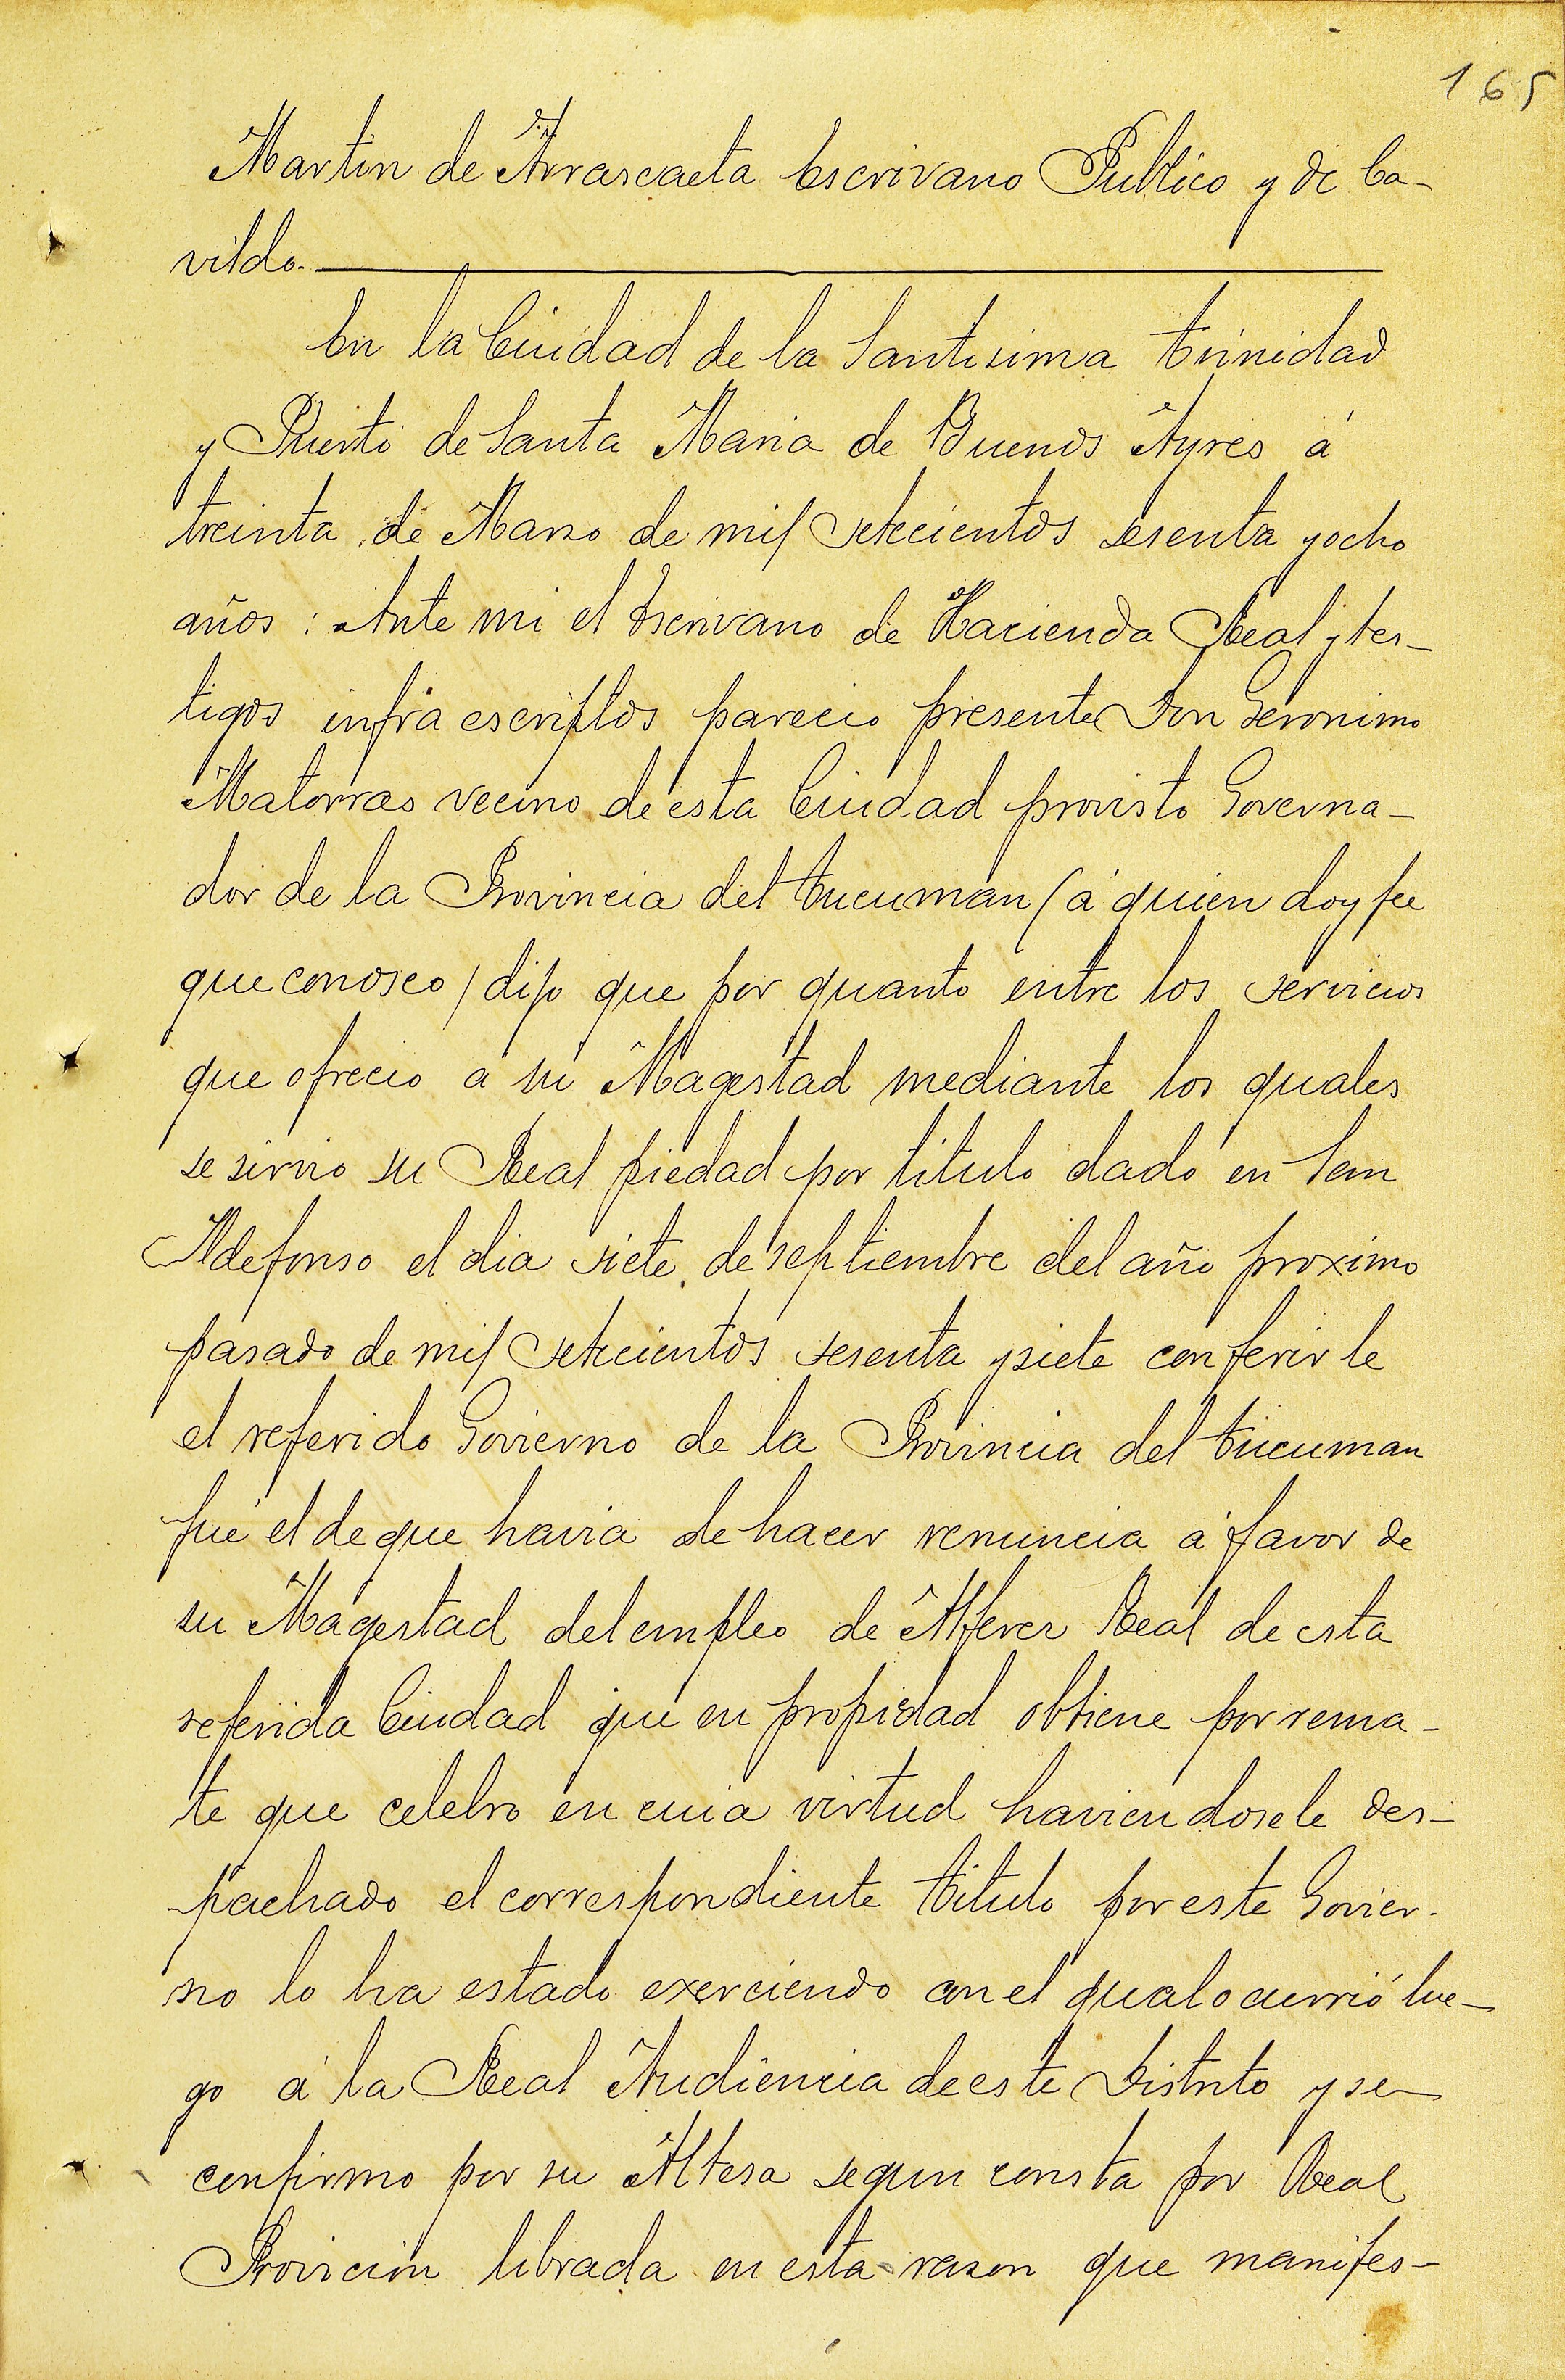 165
Martin de Arrascaeta Escrivano Publico y de Ca-
vildo.
En la Ciudad de la Santisima Trinidad
y Puerto de Santa Maria de Buenos Ayres á
treinta de Marzo de mil setecientos sesenta y ocho
años : Ante mi el Escrivano de Hacienda Real y tes-
tigos infra escriptos parecio presente Don Geronimo
Matorras vecino de esta Ciudad provisto Governa-
dor de la Provincia del Tucuman (á quien doy fee
que conosco) dijo que por quanto entre los servicios
que ofrecio á su Magestad mediante los quales
se sirvio su Real piedad por titulo dado en San
Ildefonso el dia siete de septiembre del año proximo
pasado de mil setecientos sesenta y siete conferirle
el referido Govierno de la Provincia del Tucuman
fué el de que havia de hacer renuncia á favor de
su Magestad del empleo de Alferez Real de esta
referida Ciudad que en propiedad obtiene por rema-
te que celebro en cuia virtud haviendosele des-
pachado el correspondiente titulo por este Govier-
no lo ha estado exerciendo con el qual ocurrió lue-
go á la Real Audiencia de este Distrito y se
confirmo por su Altesa segun consta por Real
Provicion librada en esta razon que manifes-